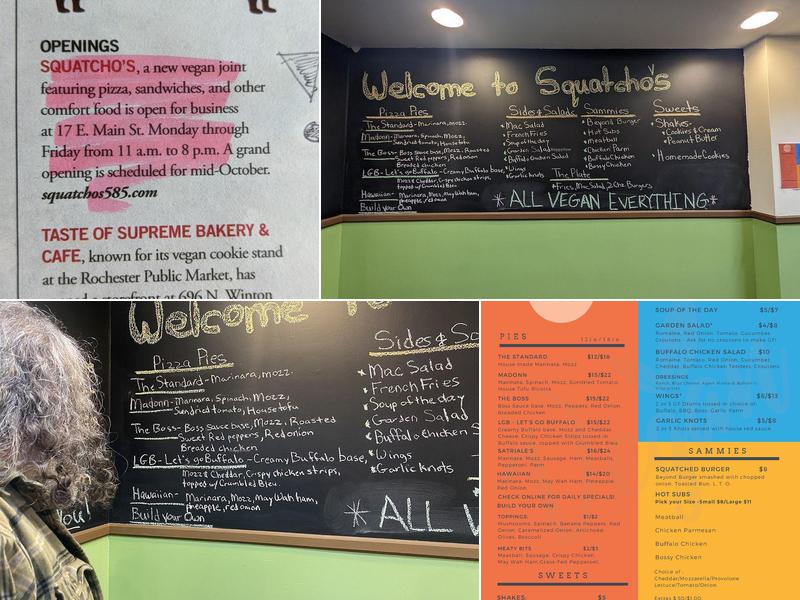 OPENINGS
SQUATCHO'S, a new vegan joint
featuring pizza, sandwiches, and other
comfort food is open for business
at 17 E. Main St. Monday through
Friday from 11 a.m. to 8 p.m. A grand
opening is scheduled for mid-October.
squatchos585.com
TASTE OF SUPREME BAKERY &
CAFE, known for its vegan cookie stand
at the Rochester Public Market, has
storefront at 696 N. Winton
Welcome to Squatcho's
Pizza Pies
The Standard-Marinara, mozz.
Madonn-Marinara, Spinach, Mozz,
Sundried tomato, House tofu
The Boss-Boss sauce base, Mozz, Roasted
Sweet Red peppers, Red onion
Breaded chicken
LGB-Let's go Buffalo-Creamy Buffalo base,
Mozz & Cheddar, Crispy chicken strips,
topped w/ Crumbled Bleu.
Hawaiian- Marinara, Mozz, May Wah ham,
pineapple, red onion
Build your Own
Sides & Salads
*Mac Salad
*French Fries
*Soup of the day
*Garden Salad
*Buffalo Chicken Salad
*Wings
*Garlic Knots
Sammies
*Beyond Burger
*Hot Subs
*Meatball
*Chicken Parm
*Buffalo Chicken
*Bossy Chicken
The Plate
*Fries, Mac Salad, 2 Che Burgers
Sweets
*Shakes-
*Cookies & Cream
*Peanut Butter
*Homemade Cookies
*ALL VEGAN EVERYTHING*
Welcome
Pizza Pies
The Standard-Marinara, mozz.
Madonn-Marinara, Spinach, Mozz,
Sundried tomato, House tofu
The Boss-Boss sauce base, Mozz, Roasted
Sweet Red peppers, Red onion
Breaded chicken
LGB-Let's go Buffalo-Creamy Buffalo base,
Mozz & Cheddar, Crispy chicken strips,
topped w/ Crumbled Bleu.
Hawaiian- Marinara, Mozz, May Wah ham,
pineapple, red onion
Build your Own
Sides & Sa
*Mac Salad
*French Fries
*Soup of the day
*Garden Salad
*Buffalo Chicken S
*Wings
*Garlic Knots
*ALL V
You!
PIES
12in/16in
THE STANDARD $12/$16
House made Marinara, Mozz
MADONN $15/$22
Marinara, Spinach, Mozz, Sundried Tomato,
House Tofu Ricotta
THE BOSS $15/$22
Boss Sauce base, Mozz, Peppers, Red Onion,
Breaded Chicken
LGB - LET'S GO BUFFALO $15/$22
Creamy Buffalo base, Mozz and Cheddar
Cheese, Crispy Chicken Strips tossed in
Buffalo sauce, topped with Crumbled Bleu
SATRIALE'S $16/$24
Marinara, Mozz, Sausage, Ham, Meatballs,
Pepperoni, Parm
HAWAIIAN $14/$20
Marinara, Mozz, May Wah Ham, Pineapple
Red Onion
CHECK ONLINE FOR DAILY SPECIALS!
BUILD YOUR OWN
TOPPINGS: $1/$2
Mushrooms, Spinach, Banana Peppers, Red
Onion, Caramelized Onion, Artichoke,
Olives, Broccoli
HEATY BITS $2/$3
Meatball, Sausage, Crispy Chicken,
May Wah Ham, Grass-Fed Pepperoni,
SWEETS
SHAKES: $5
SOUP OF THE DAY $5/$7
GARDEN SALAD* $4/$8
Romaine, Red Onion, Tomato, Cucumber,
Croutons - Ask for no croutons to make GF!
BUFFALO CHICKEN SALAD $10
Romaine, Tomato, Red Onion, Cucumber,
Cheddar, Buffalo Chicken Tenders, Croutons
DRESSINGS
WINGS* $6/$13
2 or 5 GF Drums tossed in choice of
Buffalo, BBQ, Boss, Garlic Parm
GARLIC KNOTS $5/$8
2 or 5 Knots served with house red sauce
SAMMIES
SQUATCHED BURGER $8
Beyond Burger smashed with chopped
onion. Toasted Bun, L, T, O.
HOT SUBS
Pick your Size -Small $8/Large $11
Meatball
Chicken Parmesan
Buffalo Chicken
Bossy Chicken
Choice of -
Cheddar/Mozzarella/Provolone
Lettuce/Tomato/Onion
Extras $.50/$1.00